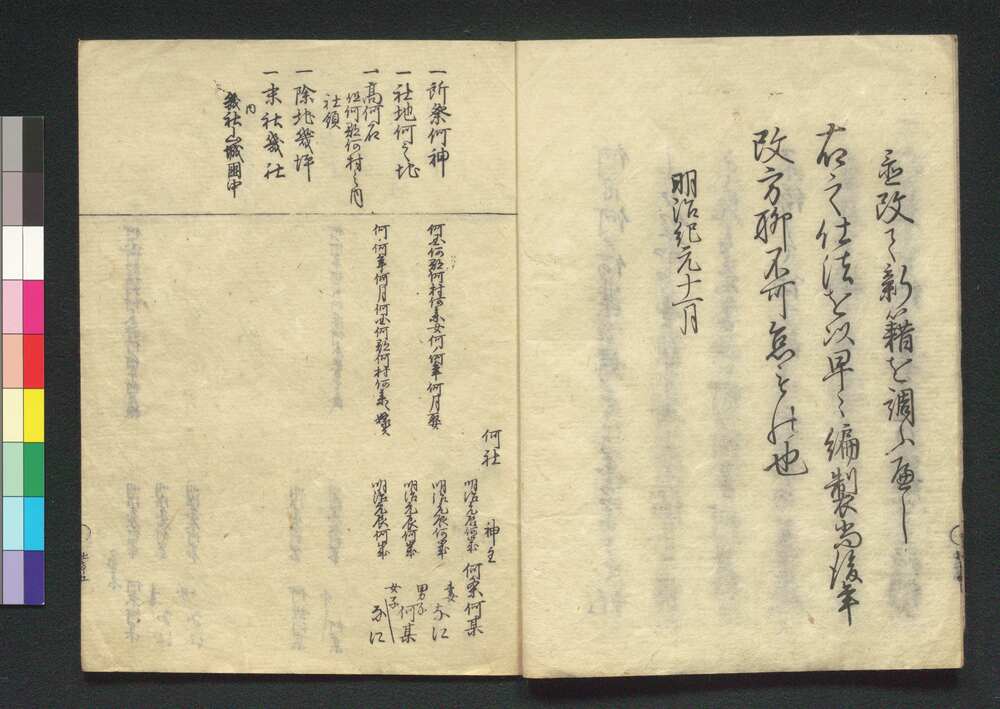 亟改て新籍を調ふ
右之仕法を以早々編製尚後年
改方聊不可怠もの也
明治紀元十一月
一所祭何神
一社地何々地
一高何石
但何郡何村之内
社領
一除地幾坪
一末社幾社
内
幾社山城国中
何社
神主
明治元辰何歳
何某何某
何国何郡何村何某女何ノ何年何月娶
明治元辰何歳
妻
なに
明治元辰何歳
男子
何某
何ノ何年何月何国何郡何村何某嫁
明治元辰何歳
女子
なに